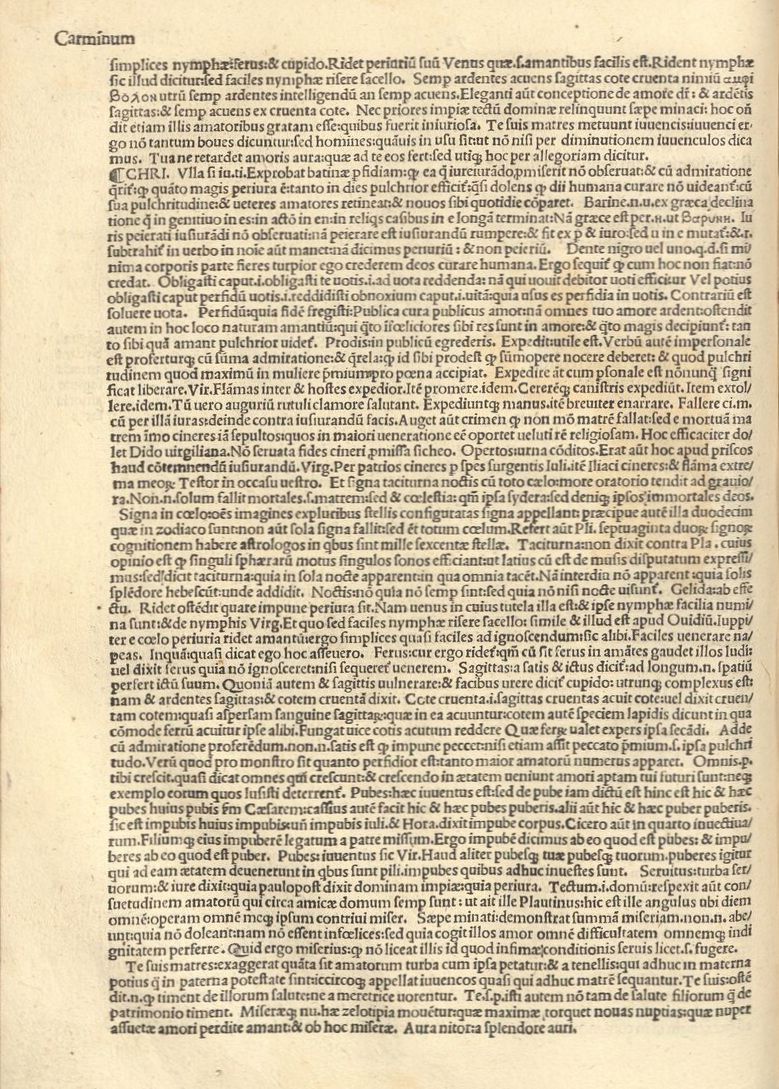 Carminum
simplices nymphæ:ferus:& cupido. Ridet periuriũ suũ Venus quæ.s.amantibus facilis est. Rident nymphæ
sic illud dicitur:sed faciles nymphæ risere sacello. Semp ardentes acuens sagittas cote cruenta nimiũ αμφι
βολον utrũ semp ardentes intelligendũ an semp acuens. Eleganti aũt conceptione de amore dr̃: & ardẽtis
sagittas:& semp acuens ex cruenta cote. Nec priores impiæ tectũ dominæ relinquunt sæpe minaci: hoc oñ
dit etiam illis amatoribus gratam esse:quibus fuerit iniuriosa. Te suis matres metuunt iuuencis:iuuenci er/
go nõ tantum boues dicuntur:sed homines:quãuis in usu sit:ut nõ nisi per diminutionem iuuenculos dica
mus. Tua ne retardet amoris aura:quæ ad te eos fert:sed utiq; hoc per allegoriam dicitur.
¶CHRI. Vlla si iu.ti. Exprobat batinæ pfidiam:q ea q̃ iureiurãdo,pmiserit nõ obseruat:& cũ admiratione
q̃rit:q quãto magis periura ẽ:tanto in dies pulchrior efficit:q̃si dolens q dii humana curare nõ uideant:cũ
sua pulchritudine:& ueteres amatores retineat:& nouos sibi quotidie cõparet. Barine.n.u.ex græca declina
tione q̃ in genitiuo in es:in actõ in en:in reliq̃s casibus in e longã terminat:Nã græce est per.н.ut βαρινн. Iu
ris peierati iusiurãdi nõ obseruati:nã peierare est iusiurandũ rumpere:& fit ex p & iuro:sed u in e mutat:& r.
subtrahit in uerbo in noie aũt manet:nã dicimus periuriũ : & non peieriũ. Dente nigro uel uno.q.d.si mi/
nima corporis parte fieres turpior ego crederem deos curare humana. Ergo sequit q cum hoc non fiat:nõ
credat. Obligasti caput.i.obligasti te uotis.i.ad uota reddenda: nã qui uouit debitor uoti efficitur Vel potius
obligasti caput perfidũ uotis.i.reddidisti obnoxium caput.i.uitã:quia usus es perfidia in uotis. Contrariũ est
soluere uota. Perfidũ:quia fidẽ fregisti:Publica cura publicus amor:nã omnes tuo amore ardent:ostendit
autem in hoc loco naturam amantiũ:qui q̃to ifœliciores sibi res sunt in amore:& q̃to magis decipiunt: tan
to sibi quã amant pulchrior uidet. Prodis:in publicũ egrederis. Expedit:utile est. Verbũ autẽ impersonale
est proferturq; cũ sũma admiratione:& q̃rela:q id sibi prodest q sũmopere nocere deberet: & quod pulchri
tudinem quod maximũ in muliere p̃mium,pro pœna accipiat. Expedire aũt cum psonale est nõnunq̃ signi
ficat liberare. Vir. Flãmas inter & hostes expedior. Itẽ promere.idem. Cererẽq; canistris expediũt. Item extol/
lere.idem. Tũ uero auguriũ rutuli clamore salutant. Expediuntq; manus.itẽ breuiter enarrare. Fallere ci.m.
cũ per illã iuras:deinde contra iusiurandũ facis. Auget aũt crimen q non mõ matrẽ fallat:sed e mortuã ma
trem imo cineres iã sepultos:quos in maiori ueneratione eẽ oportet ueluti rẽ religiosam. Hoc efficaciter do/
let Dido uirgiliana. Nõ seruata fides cineri ,pmissa sicheo. Opertos:urna cõditos. Erat aũt hoc apud priscos
haud cõtemnendũ iusiurandũ. Virg. Per patrios cineres p spes surgentis Iuli.itẽ Iliaci cineres:& flãma extre/
ma meoꝝ Testor in occasu uestro. Et signa taciturna noctis cũ toto cælo:more oratorio tendit ad grauio/
ra. Non.n.solum fallit mortales.s.matrem:sed & cœlestia:qm̃ ipsa sydera:sed deniq; ipsos immortales deos.
Signa in cœlo:oẽs imagines expluribus stellis configuratas signa appellant:præcipue autẽ illa duodecim
quæ in zodiaco sunt:non aũt sola signa fallit:sed ẽt totum cœlum. Refert aũt Pli. septuaginta duoꝝ signoꝝ
cognitionem habere astrologos in q̃bus sint mille sexcentæ stellæ. Taciturna:non dixit contra Pla. cuius
opinio est q singuli sphærarũ motus singulos sonos efficiant:ut latius cũ est de musis disputatum expressi/
mus:sed dicit taciturna:quia in sola nocte apparent:in qua omnia tacẽt. Nã interdiu nõ apparent :quia solis
splẽdore hebescũt:unde addidit. Noctis:nõ quia nõ semp sint:sed quia nõ nisi nocte uisunt. Gelida:ab effe
ctu. Ridet ostẽdit quare impune periura sit. Nam uenus in cuius tutela illa est:& ipse nymphæ facilia numi/
na sunt:& de nymphis Virg. Et quo sed faciles nymphæ risere sacello: simile & illud est apud Ouidiũ. Iuppi/
ter e cœlo periuria ridet amantũ:ergo simplices quasi faciles ad ignoscendum:sic alibi. Faciles uenerare na/
peas. Inquã:quasi dicat ego hoc asseuero. Ferus:cur ergo ridet:qm̃ cũ sit ferus in amãtes gaudet illos ludi:
uel dixit ferus quia nõ ignosceret:nisi sequeret uenerem. Sagittas:a satis & ictus dicit:ad longum.n.spatiũ
perfert ictũ suum. Quoniã autem & sagittis uulnerare:& facibus urere dicit cupido: utrunq; complexus est:
nam & ardentes sagittas:& cotem cruentã dixit. Cote cruenta.i.sagittas cruentas acuit cote:uel dixit cruen/
tam cotem:quasi aspersam sanguine sagittaꝝ:quæ in ea acuuntur:cotem autẽ speciem lapidis dicunt in qua
cõmode ferrũ acuitur ipse alibi. Fungat uice cotis acutum reddere Quæ ferꝝ ualet expers ipsa secãdi. Adde
cũ admiratione proferẽdum.non.n.satis est q impune peccet:nisi etiam assit peccato p̃mium.s.ipsa pulchri
tudo. Verũ quod pro monstro sit quanto perfidior est:tanto maior amatorũ numerus apparet. Omnis.p.
tibi crescit.quasi dicat omnes qm̃ crescunt:& crescendo in ætatem ueniunt amori aptam tui futuri sunt:neq;
exemplo eorum quos lusisti deterrent. Pubes:hæc iuuentus est:sed de pube iam dictũ est hinc est hic & hæc
pubes huius pubis p̃m Cæsarem:cassius autẽ facit hic & hæc pubes puberis.alii aũt hic & hæc puber puberis.
sic est impubis huius impubis:uñ impubis iuli.& Hora.dixit impube corpus. Cicero aũt in quarto inuectiua/
rum. Filiumq; eius impuberẽ legatum a patre missum. Ergo impubẽ dicimus ab eo quod est pubes: & impu/
beres ab eo quod est puber. Pubes:iuuentus sic Vir. Haud aliter pubesq; tuæ pubesq; tuorum.puberes igitur
qui ad eam ætatem deuenerunt in q̃bus sunt pili.impubes quibus adhuc inuestes sunt. Seruitus:turba ser/
uorum:& iure dixit:quia paulopost dixit dominam impiæ:quia periura. Tectum.i.domũ:respexit aũt con/
suetudinem amatorũ qui circa amicæ domum semp sunt : ut ait ille Plautinus:hic est ille angulus ubi diem
omnẽ:operam omnẽ meq; ipsum contriui miser. Sæpe minati:demonstrat summã miseriam.non.n.abe/
unt:quia nõ doleant:nam nõ essent infœlices:sed quia cogit illos amor omnẽ difficultatem omnemq; indi
gnitatem perferre. Quid ergo miserius:q nõ liceat illis id quod infimæ conditionis seruis licet.s.fugere.
Te suis matres:exaggerat quãta sit amatorum turba cum ipsa petatur:& a tenellis:qui adhuc in materna
potius q̃ in paterna potestate sint:iccircoq; appellat iuuencos quasi qui adhuc matrẽ sequantur. Te suis:ostẽ
dit.n.q timent de illorum salute:ne a meretrice uorentur. Te.s.p.isti autem nõ tam de salute filiorum q̃ de
patrimonio timent. Miseræq; nu.hæ zelotipia mouẽtur:quæ maximæ torquet nouas nuptias:quæ nuper
assuetæ amori perdite amant:& ob hoc miseræ. Aura nitor:a splendore auri.